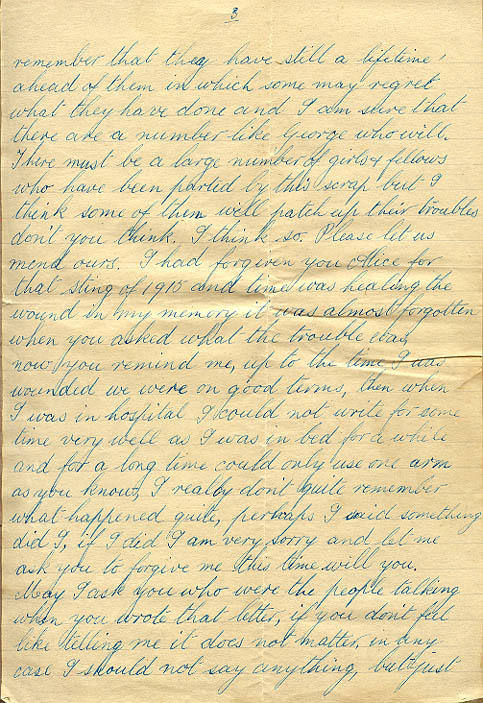 3
remember that they have still a lifetime
ahead of them in which some may regret
what they have done and I am sure that
there are a number like George who will.
There must be a large number of girls & fellows
who have been parted by this scrap but I
think some of them will patch up their troubles
don't you think. I think so. Please let us
mend ours. I had forgiven you Ollice for
that sting of 1915 and time was healing the
wound in my memory it was almost forgotten
when you asked what the trouble was,
now you remind me, up to the time I was
wounded we were on good terms, then when
I was in hospital I could not write for some
time very well as I was in bed for a while
and for a long time could only use one arm
as you know, I really don't quite remember
what happened quite, perhaps I said something
did I, if I did I am very sorry and let me
ask you to forgive me this time will you.
May I ask you who were the people talking
when you wrote that letter, if you don't feel
like telling me it does not matter, in any
case I should not say anything, but just